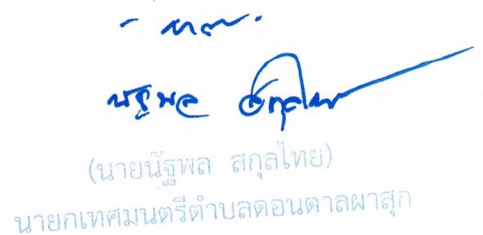 - ทราบ.
นัฐพล สกุลไทย
(นายนัฐพล สกุลไทย)
นายกเทศมนตรีตำบลดอนตาลผาสุก